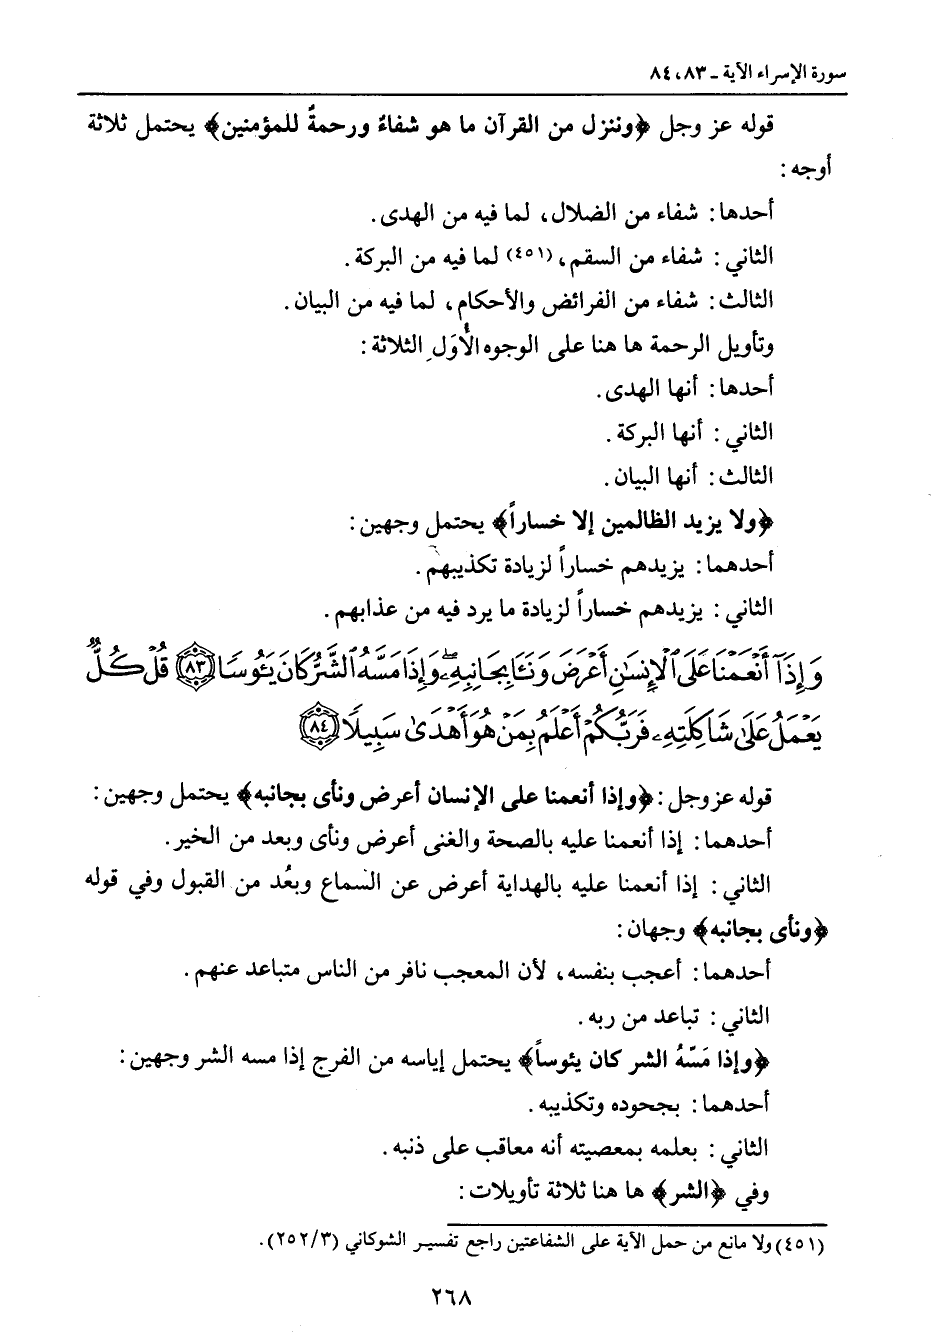 سورة الإسراء الآية ـ ٨٣، ٨٤
قوله عز وجل ﴿وننزل من القرآن ما هو شفاءٌ ورحمةٌ للمؤمنين﴾ يحتمل ثلاثة
أوجه :
أحدها : شفاء من الضلال، لما فيه من الهدى.
الثاني : شفاء من السقم، (٤٥١) لما فيه من البركة .
الثالث : شفاء من الفرائض والأحكام، لما فيه من البيان.
وتأويل الرحمة ها هنا على الوجوه الأُوَل الثلاثة :
أحدها : أنها الهدى.
الثاني : أنها البركة .
الثالث : أنها البيان.
﴿ولا يزيد الظالمين إلا خساراً﴾ يحتمل وجهين :
أحدهما : يزيدهم خساراً لزيادة تكذيبهم.
الثاني : يزيدهم خساراً لزيادة ما يرد فيه من عذابهم.
وَإِذَآ أَنْعَمْنَا عَلَى ٱلْإِنسَٰنِ أَعْرَضَ وَنَـَٔا بِجَانِبِهِۦ ۖ وَإِذَا مَسَّهُ ٱلشَّرُّ كَانَ يَـُٔوسًا ﴿٨٣﴾ قُلْ كُلٌّ
يَعْمَلُ عَلَىٰ شَاكِلَتِهِۦ فَرَبُّكُمْ أَعْلَمُ بِمَنْ هُوَ أَهْدَىٰ سَبِيلًا ﴿٨٤﴾
قوله عز وجل : ﴿وإذا أنعمنا على الإنسان أعرض ونأى بجانبه﴾ يحتمل وجهين :
أحدهما : إذا أنعمنا عليه بالصحة والغنى أعرض ونأى وبعد من الخير.
الثاني : إذا أنعمنا عليه بالهداية أعرض عن السماع وبعُد من القبول وفي قوله
﴿ونأى بجانبه﴾ وجهان :
أحدهما : أعجب بنفسه، لأن المعجب نافر من الناس متباعد عنهم.
الثاني : تباعد من ربه.
﴿وإذا مَسّهُ الشر كان يئوساً﴾ يحتمل إياسه من الفرج إذا مسه الشر وجهين :
أحدهما : بجحوده وتكذيبه.
الثاني : بعلمه بمعصيته أنه معاقب على ذنبه.
وفي ﴿الشر﴾ ها هنا ثلاثة تأويلات :
(٤٥١) ولا مانع من حمل الآية على الشفاعتين راجع تفسير الشوكاني (٢٥٢/٣).
٢٦٨